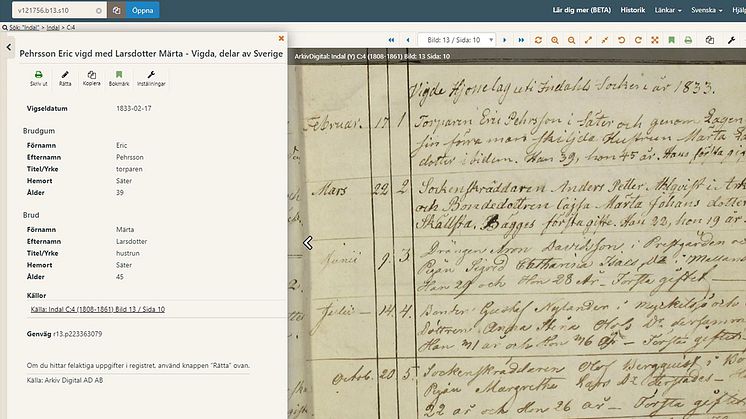 v121756.b13.s10
Öppna
Lär dig mer (BETA)
Historik
Länkar
Svenska
Hjäl
Sök: "Indal" > Indal > C:4
Bild: 13 / Sida: 10
Pehrsson Eric vigd med Larsdotter Märta - Vigda, delar av Sverige
ArkivDigital: Indal (Y) C:4 (1808-1861) Bild: 13 Sida: 10
Skriv ut
Rätta
Kopiera
Bokmärk
Inställningar
Vigseldatum 1833-02-17
Brudgum
Förnamn Eric
Efternamn Pehrsson
Titel/Yrke torparen
Hemort Säter
Ålder 39
Brud
Förnamn Märta
Efternamn Larsdotter
Titel/Yrke hustrun
Hemort Säter
Ålder 45
Källor
Källa: Indal C:4 (1808-1861) Bild 13 / Sida 10
Genväg r13.p223363079
Om du hittar felaktiga uppgifter i registret, använd knappen "Rätta" ovan.
Källa: Arkiv Digital AD AB
Vigde Hjonelag uti Indahls Socken i år 1833.
Februar. 17 1 Torparen Eric Pehrsson i Säter och genom Lagen
förra man skiljda Hustrun Märta
dotter ibidem. Han 39, hon 45 år. Hans första
Mars 22 2 Sockenskräddaren Anders Petter
och Bondedottren Cajsa Märta Johans dotter
Bägges förstagifte. Han 22, hon 19 år
Junii 9. 3 Drängen Aron Davidsson, i Prestgården
Pigan Sigrid Catharina
Han 29 och Hon 28 År. Första giftet
14. 4. Bonden Gustaf Nylander i
Dottren Anna
Han 31 år och Hon 26 År. Första giftet
Octob. 20 5. Sockenskräddaren Olof Bergquist i
Pigan Margretha Lars Dr
22 år och Hon 26 år - Första giftet